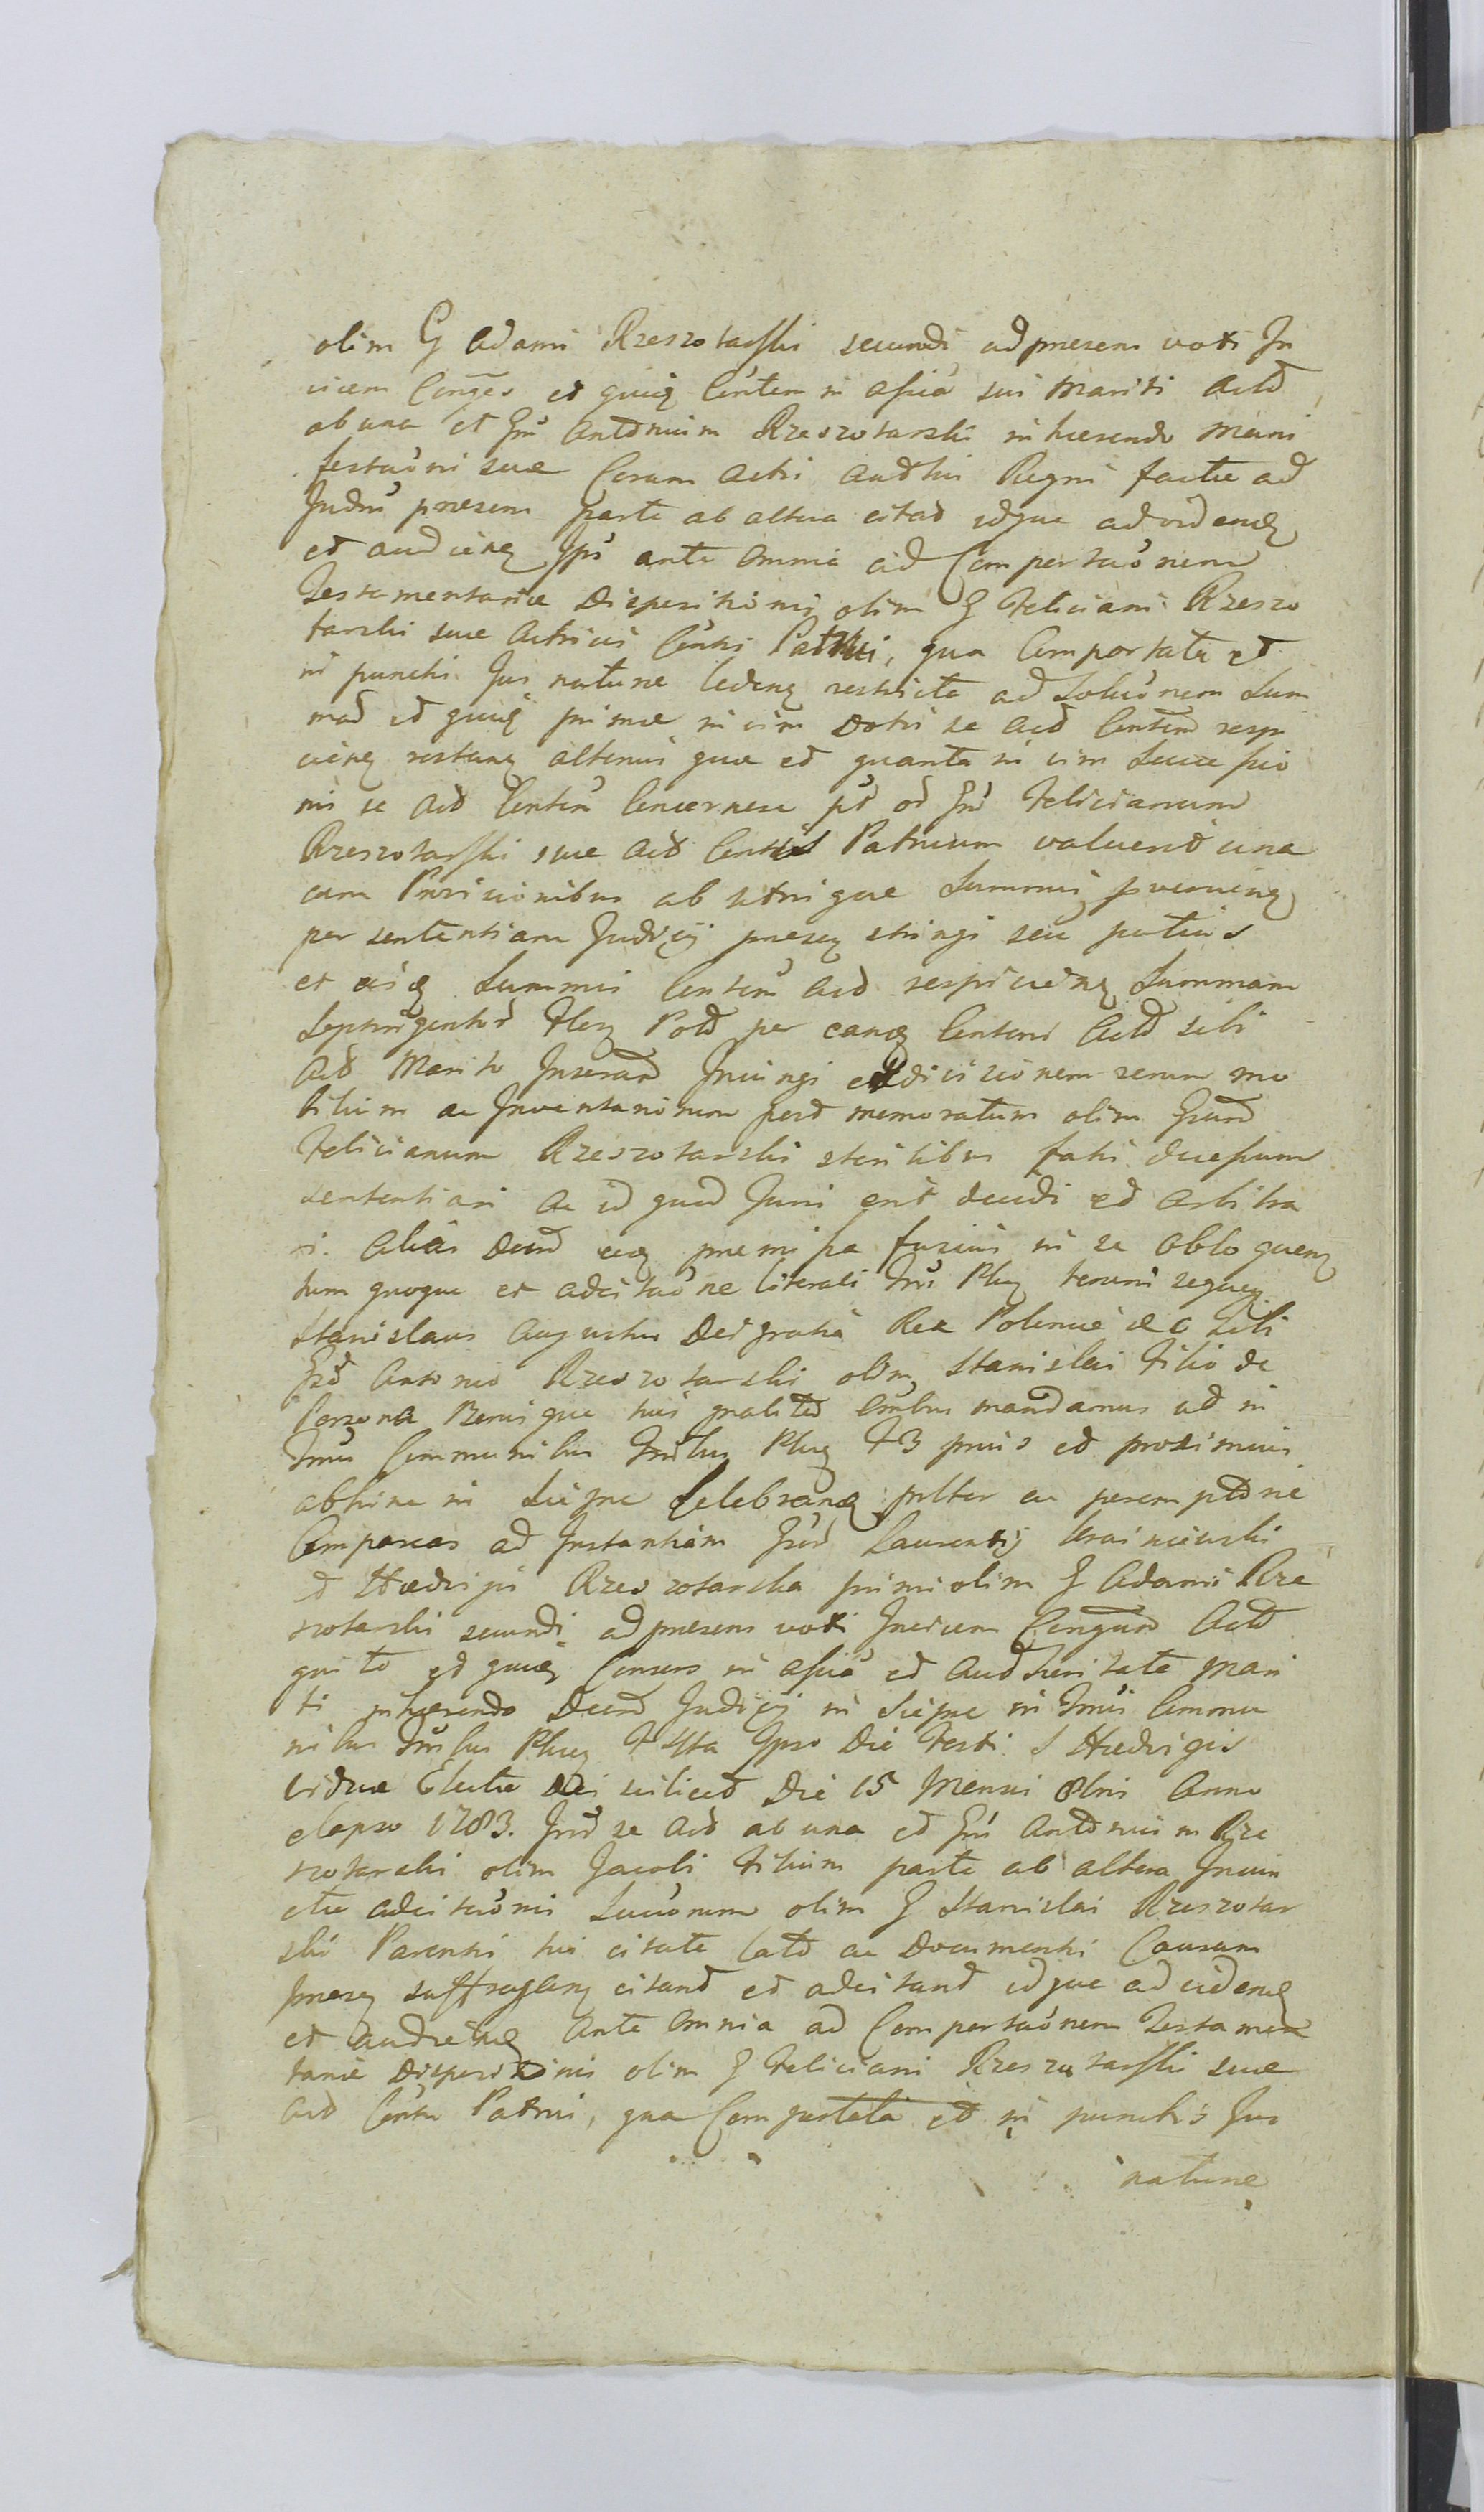 olim G Adami Rzeszotarski secundi ad presens voti In
vicem Conges et quaeq Contem in assia sui Mariti Act
ab una et Gm Antonium Rzeszotarski inhaerendo mani
festaoni suae Coram Actis Authis Regni factae ad
Judm praesens parte ab altera citat idque ad vidend
et audiend Ips ante omnia ad Comportaonem
Testamentariae Dispositionis olim G Feliciani Rzeszo
tarski suae Actricis Contis Patrui, qua Comportata et
in punctis Jus naturae leden restricta ad Soluonem Sum
mar et quidq primae in vim Dotis se Act Contem resp
icien restan alterius quae et quanta in vim Successio
nis se Act Contem Concernen pt ad Gm Felicianum
Rzeszotarski suae Act Contis Patruum valuerit una
cum Provisionibus ab utrisque Summis provenien
per sententiam Judicij praesen stringi seu potius
et eisq Summis Contem Act respicien Summam
Septingentor Flor Pol per eandq Contem Act sibi
Act Marito Inscrat Injungi et divisionem rerum mo
bilium ac Inventariorum post memoratum olim Gsum
Felicianum Rzeszotarski sterilibus fatis decessum
sententiari ac id quod Juris erit decidi et arbitra
ri. Alias Decrt eaq praemissa fusius in se obloquen
tum quoque et adcitaone literali Trus Plocen tenoris sequen
Stanislaus Augustus Dei gratia Rex Poloniae &c Tibi
Gso Antonio Rzeszotarski olim Stanislai Filio de
Persona Bonisque tuis gralit Omibus mandamus ut in
Tmis Communibus Trribus Plocen T B prius et proximius
abhinc in Sierpc Celebrand psnlter ac peremptorie
Compareas ad Instantiam Gsor Laurentij Krainiewski
et Haedvigis Rzeszotarska primi olim G Adami Rze
szotarski secundi ad presens voti Invicem Congum Act
quito et quaeq Consors in assia et Authoritate Mari
ti inhaerendo Decrt Judicij in Sierpc in Tmis Commu
nibus Trribus Plocen T Ssta Ipso Die Festi S Haedvigis
Viduae Electae Dei scilicet Die 15 Mensis 8bris Anno
elapso 1783. Intr se Act ab una et Gm Antonium Rze
szotarski olim Jacobi Filium parte ab altera Injun
ctae adcitaonis Succorum olim G Stanislai Rzeszotar
ski Parentis tui citate lat ac Documentis Causam
praesen suffragan citand et adcitand idque ad vidend
et audiend ante omnia ad Comportaonem Testamen
tariae Dispositionis olim G Feliciani Rzeszotarski suae
Act Contis Patrui, qua Comportata et in punctis Jus
naturae